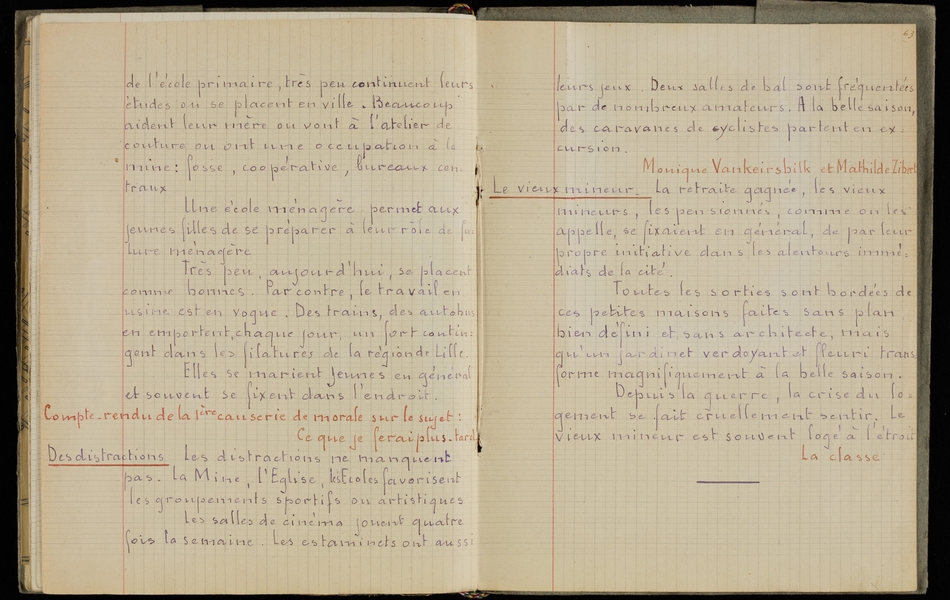 de l'école primaire, très peu continuent leurs
études ou se placent en ville. Beaucoup
aident leur mère ou vont à l'atelier de
couture ou ont une occupation à la
mine : fosse, coopérative, bureaux cen-
traux
Une école ménagère permet aux
jeunes filles de se préparer à leur rôle de fu-
ture ménagère
Très peu, aujourd'hui, se placent
comme bonnes. Par contre, le travail en
usine est en vogue. Des trains, des autobus
en emportent, chaque jour, un fort contin-
gent dans les filatures de la région de Lille.
Elles se marient jeunes en général
et souvent se fixent dans l'endroit.
Compte-rendu de la 1ère causerie de morale sur le sujet :
Ce que je ferai plus-tard
Des distractions Les distractions ne manquent
pas. La Mine, l'Eglise, les Ecoles favorisent
les groupements sportifs ou artistiques
Les salles de cinéma jouent quatre
fois la semaine. Les estaminets ont aussi
63
leurs jeux. Deux salles de bal sont fréquentées
par de nombreux amateurs. A la belle saison,
des caravanes de cyclistes partent en ex-
cursion.
Monique Vankeirsbilk et Mathilde Zibert
Le vieux mineur. La retraite gagnée, les vieux
mineurs, les pensionnés, comme on les
appelle, se fixaient en général, de par leur
propre initiative dans les alentours immé-
diats de la cité.
Toutes les sorties sont bordées de
ces petites maisons faites sans plan
bien défini et sans architecte, mais
qu'un jardinet verdoyant et fleuri trans
forme magnifiquement à la belle saison.
Depuis la guerre, la crise du lo-
gement se fait cruellement sentir. Le
vieux mineur est souvent logé à l'étroit
La classe